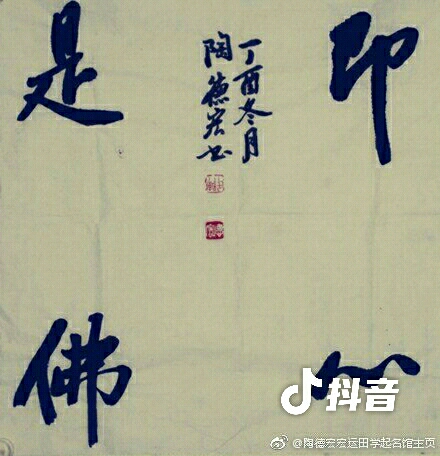 即心
丁酉冬月
陶德宏书
是佛
抖音
@陶德宏宏运田学起名馆主页